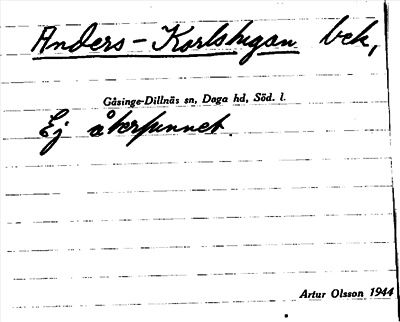 Anders-Karlstugan bek,
Gåsinge-Dillnäs sn, Daga hd, Söd. l.
Ej återfunnet.
Artur Olsson 1944